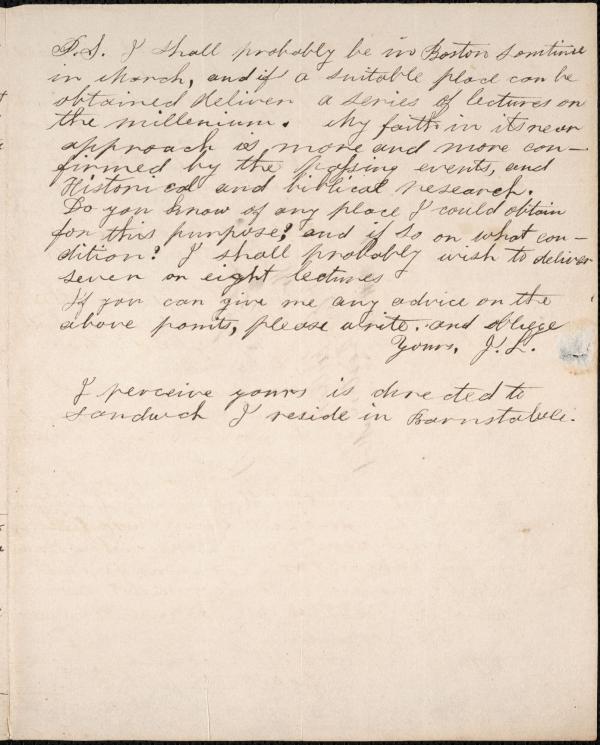 P.S. I shall probably be in Boston somtime
in March, and if a suitable place can be
obtained deliver a series of lectures on
the millenium. My faith in its near
approach is more and more con-
firmed by the passing events, and
Historical and biblical research.
Do you know of any place I could obtain
for this purpose? and if so on what con-
dition? I shall probably wish to deliver
seven or eight lectures
If you can give me any advice on the
above points, please write. and oblige
Yours, J. L.
I perceive yours is directed to
Sandwich I reside in Barnstable.